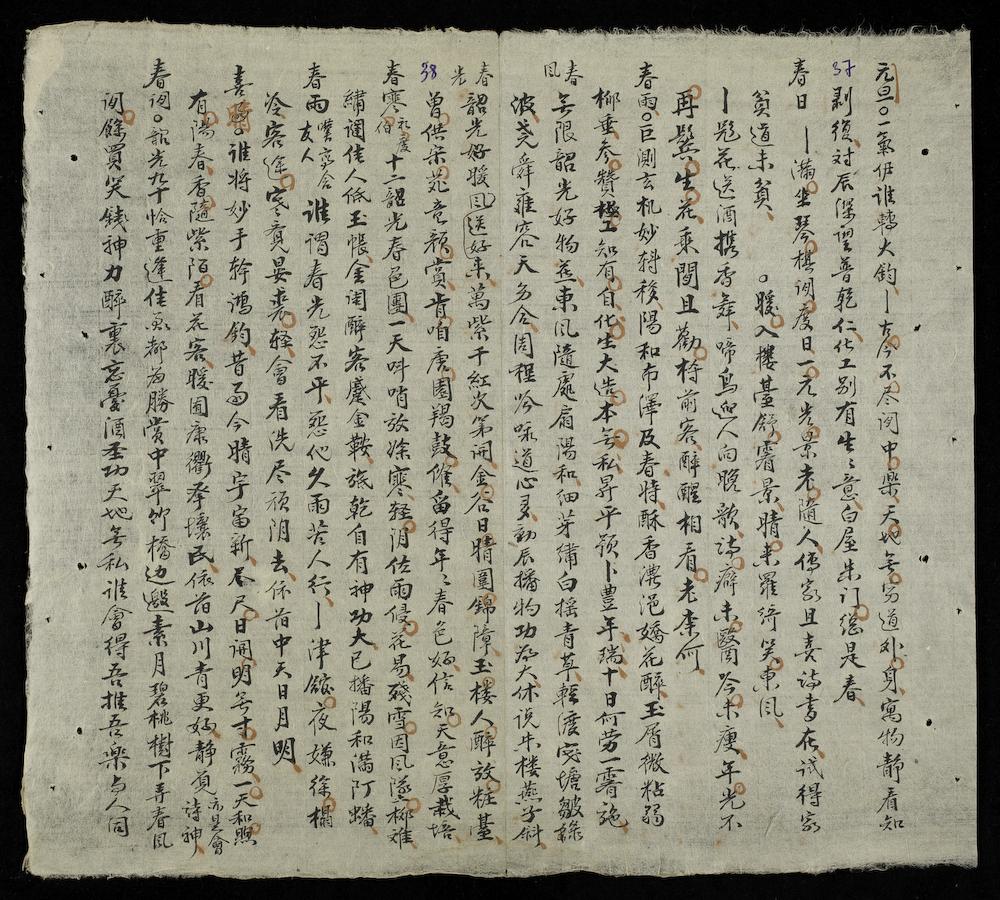 元旦。一氣伊誰轉大鈞丨古今不尽詞中樂天地無窮道外身寓物靜看知
37
剥復対辰深望普乾仁化工別有生〻意白屋朱门總是春
春日 丨滿坐琴棋詞度日一元光景老隨人儒家且喜詩書在試得家
貧道未貧 。暖入樓臺舒霽景晴來羅綺笑東風
丨題花送酒携香舞啼鳥迎人向晚歌詩癖未醫吟未瘦年光不
再鬓生花乘閒且勸樽前客醉醒相看老柰何
春雨。巨測玄机妙斡移陽和布澤及春時酥香濃浥嬌花醉玉屑微粘弱
柳垂参贊極工知有自化生大造本無私昇平預卜豊年瑞十日何劳一霽施
春風
無限韶光好物花東風隨處扇陽和细芽繍白摇青草軽浪 塘皺緑
波尧舜雍容天多合周程吟咏道心多 辰播物功於大休説朱楼燕子斜
春光
韶光好暖風送好來萬紫千紅次第開金谷日晴圍錦障玉楼人醉放粧臺
38
曾供宋苑竟頻賞肯咱唐園羯鼓催留得年〻春色好信知天意厚栽培
春寒 十二韶光春色團一天呌哨放餘寒軽阴佐雨侵花易殘雪因風墜柳难
繍閣佳人低玉帳金閨醉客蹇金鞍旋乾自有神功大已播陽和满汀蟠
春雨 友人 誰謂春光恕不平恕他久雨苦人行丨津舘夜嫌徐榻
冷客途寒覓晏裘軽會看洗尽頑阴去依旧中天日月明
喜晴。谁将妙手斡鴻鈞昔雨今晴宇宙新尽尺日開明無寸霧一天和煦
有陽春香隨紫陌看花客暖囿康衢撃壤民依旧山川青更好靜覓 詩神
春詞。韶光九十恰重逢佳 都為勝賞中翠竹橋边邀素月碧桃樹下弄春風
詞餘買笑錢神力醉裏忘憂酒圣功天地無私谁會得吾推吾樂与人同